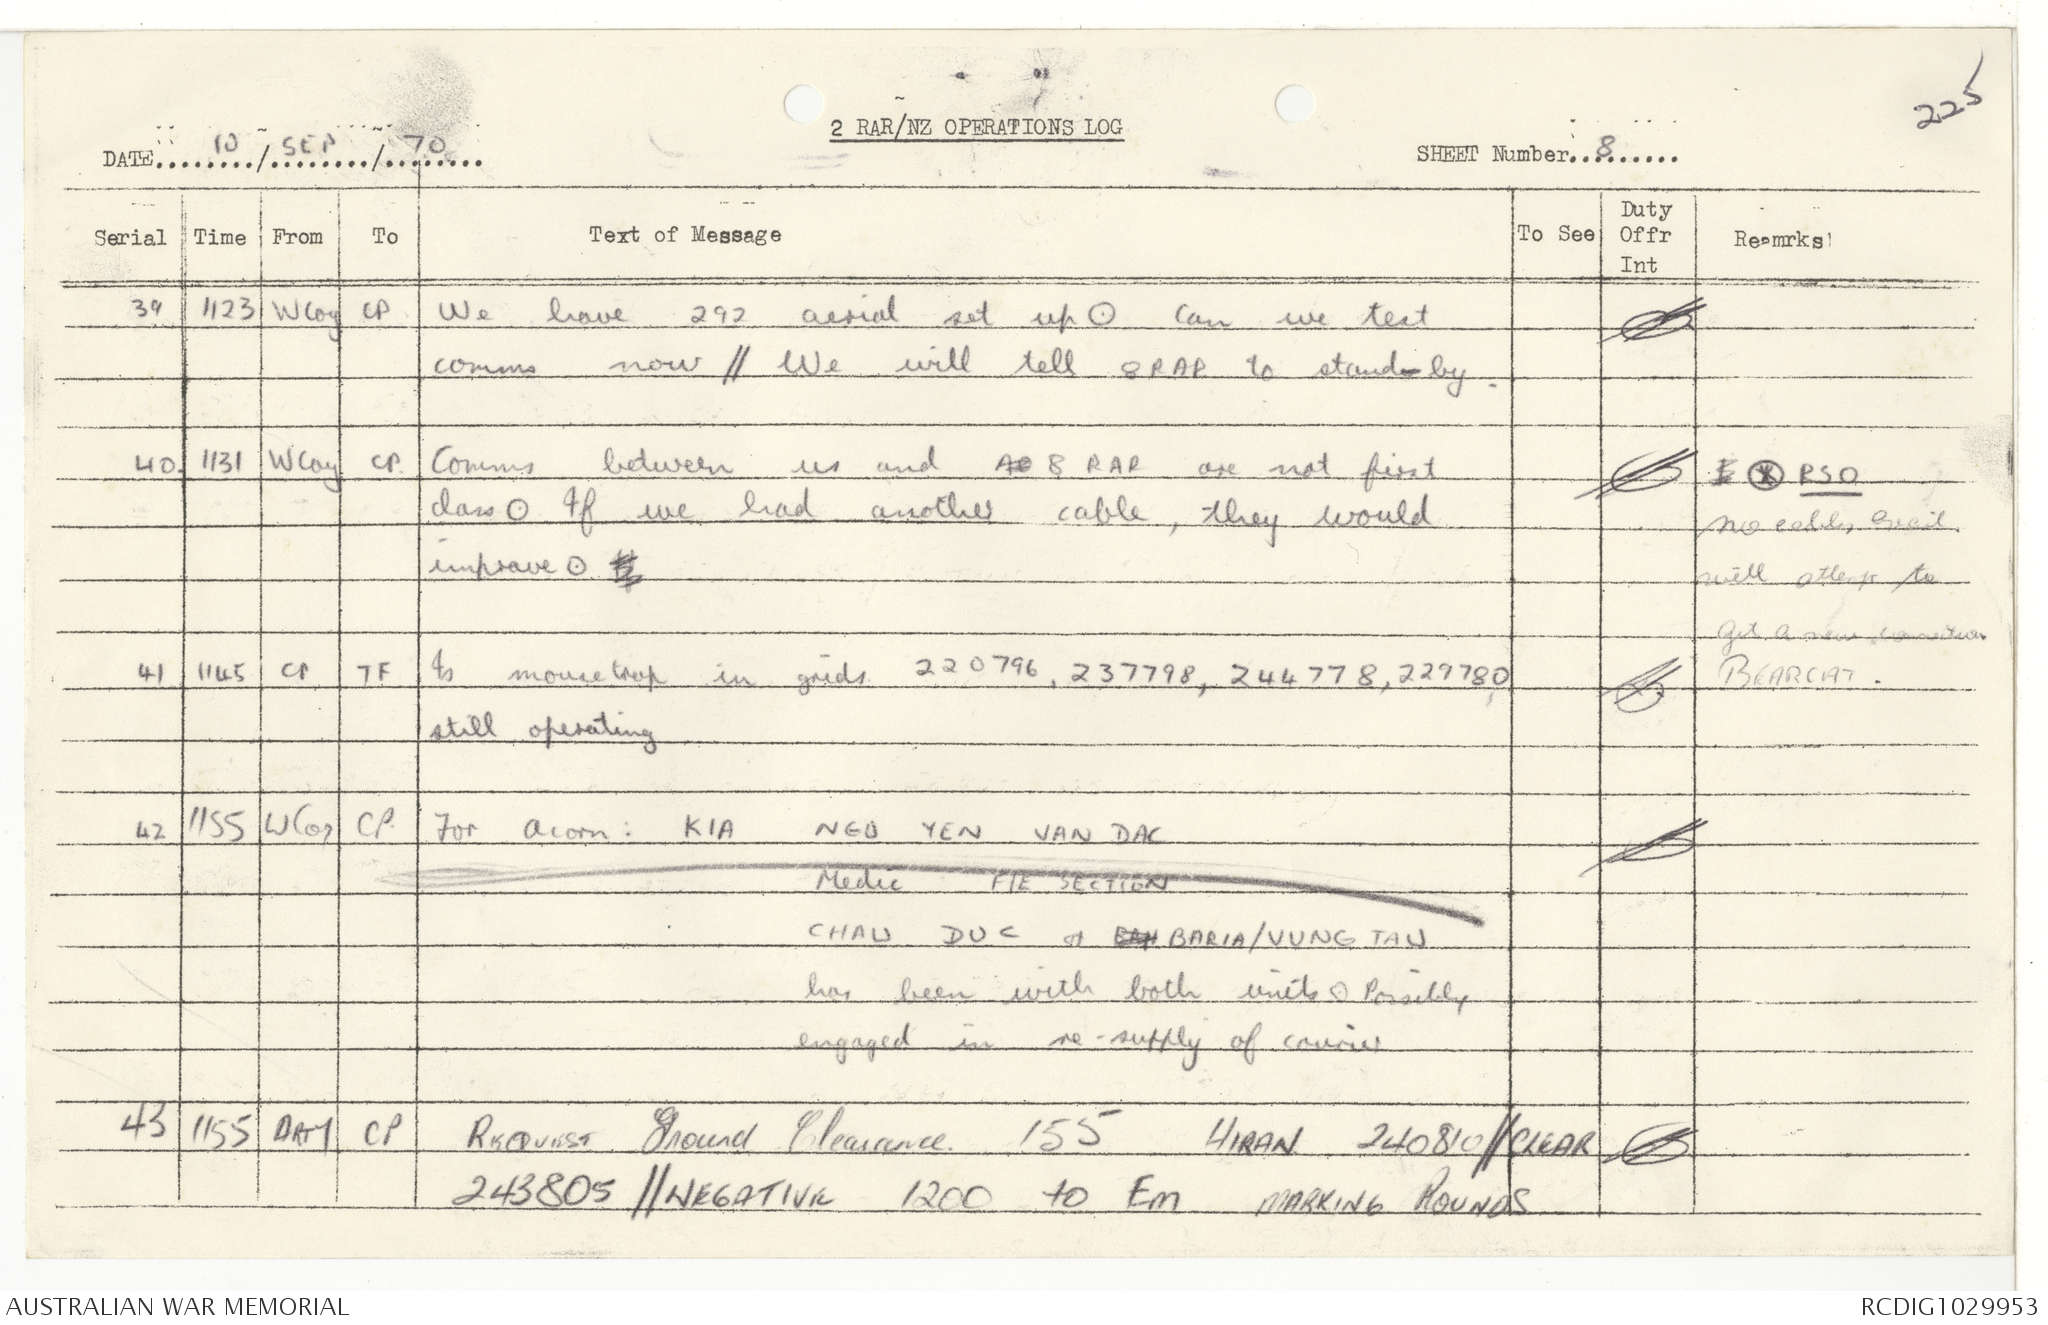 225
2 RAR/NZ OPERATIONS LOG
DATE 10/SEP/70
SHEET Number 8
Serial Time From To Text of Message To See Duty Offr Int Remrks
39 1123 WCoy CP We have 292 aerial set up⊙ Can we test
comms now // We will tell 8RAR to stand-by.
40 1131 WCoy CP. Comms between us and 8 RAR are not first RSO
class⊙ If we had another cable, they would no cable, 
improve⊙ will attempt to
get a new
41 1145 CP TF Is mousetrap in grids 220796, 237798, 244778, 229780, BEARCAT.
still operating
42 1155 WCoy CP. For Acorn: KIA NGO YEN VAN DAC
Medic FTE SECTION
CHAU DUC or BARIA/VUNG TAU
has been with both units⊙ Possibly
engaged in re-supply of courier
43 1155 DATY CP REQUEST Ground Clearance. 155 HIRAN 240810//CLEAR
243805 //NEGATIVE 1200 to Em MARKING ROUNDS
AUSTRALIAN WAR MEMORIAL RCDIG1029953